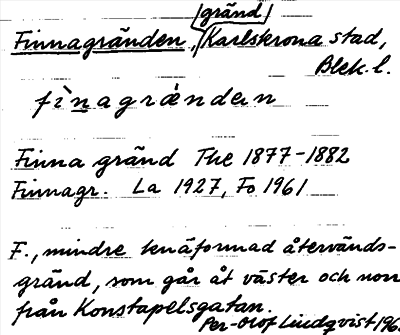 gränd
Finnagränden, Karlskrona stad,
Blek. l.
fìnagrǽndan
Finna gränd The 1877-1882
Finnagr. La 1927, Fo 1961
F., mindre knäformad återvänds-
gränd, som går åt väster och norr
från Konstapelsgatan.
Per-Olof Lindqvist